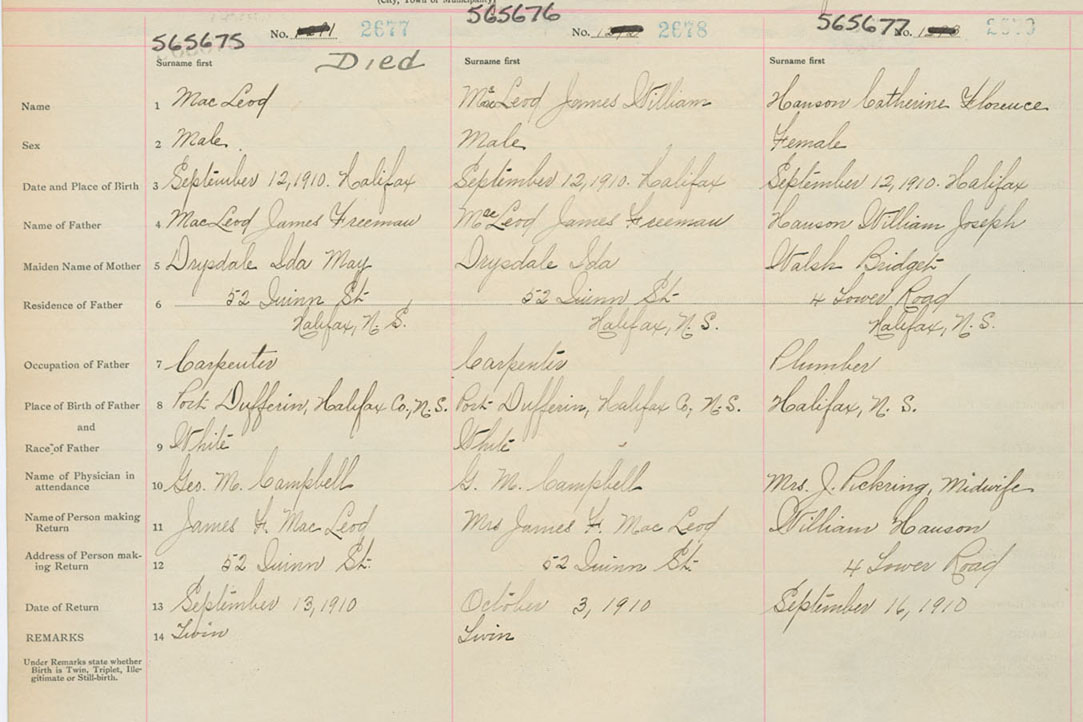 (City, Town or Municipality)
565675 No. 2677 565676 No. 2678 565677 No.
Surname first Died Surname first Surname first
Name 1 MacLeod MacLeod James William Hanson Catherine Florence
Sex 2 Male. Male Female
Date and Place of Birth 3 September 12, 1910. Halifax September 12, 1910. Halifax September 12, 1910. Halifax
Name of Father 4 MacLeod James Freeman MacLeod James Freeman Hanson William Joseph
Maiden Name of Mother 5 Drysdale Ida May Drysdale Ida Walsh Bridget
Residence of Father 6 52 Quinn St. 52 Quinn St. 4 Lower Road
Halifax, N.S. Halifax, N.S. Halifax, N.S.
Occupation of Father 7 Carpenter Carpenter Plumber
Place of Birth of Father 8 Port Dufferin, Halifax Co., N.S. Port Dufferin, Halifax Co., N.S. Halifax, N.S.
and
Race of Father 9 White White
Name of Physician in attendance 10 Geo. M. Campbell G. M. Campbell Mrs. J. Pickring, Midwife
Name of Person making Return 11 James F. MacLeod Mrs James F. MacLeod William Hanson
Address of Person making Return 12 52 Quinn St. 52 Quinn St. 4 Lower Road
Date of Return 13 September 13, 1910 October 3, 1910 September 16, 1910
REMARKS 14 Twin Twin
Under Remarks state whether
Birth is Twin, Triplet, Ille-
gitimate or Still-birth.